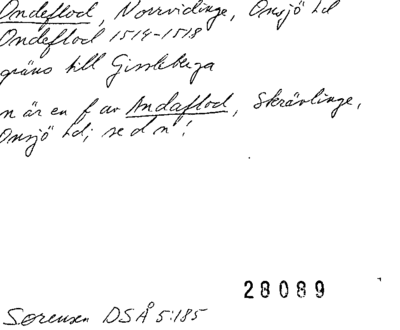 Ondeflod, Norrvidinge, Onsjö hd
Ondeflod 1514-1518
gräns till Gissleberga
n är en f av Andaflod, Skrävlinge,
Onsjö hd; se d n!
28089
Sorensen DSÅ 5:185